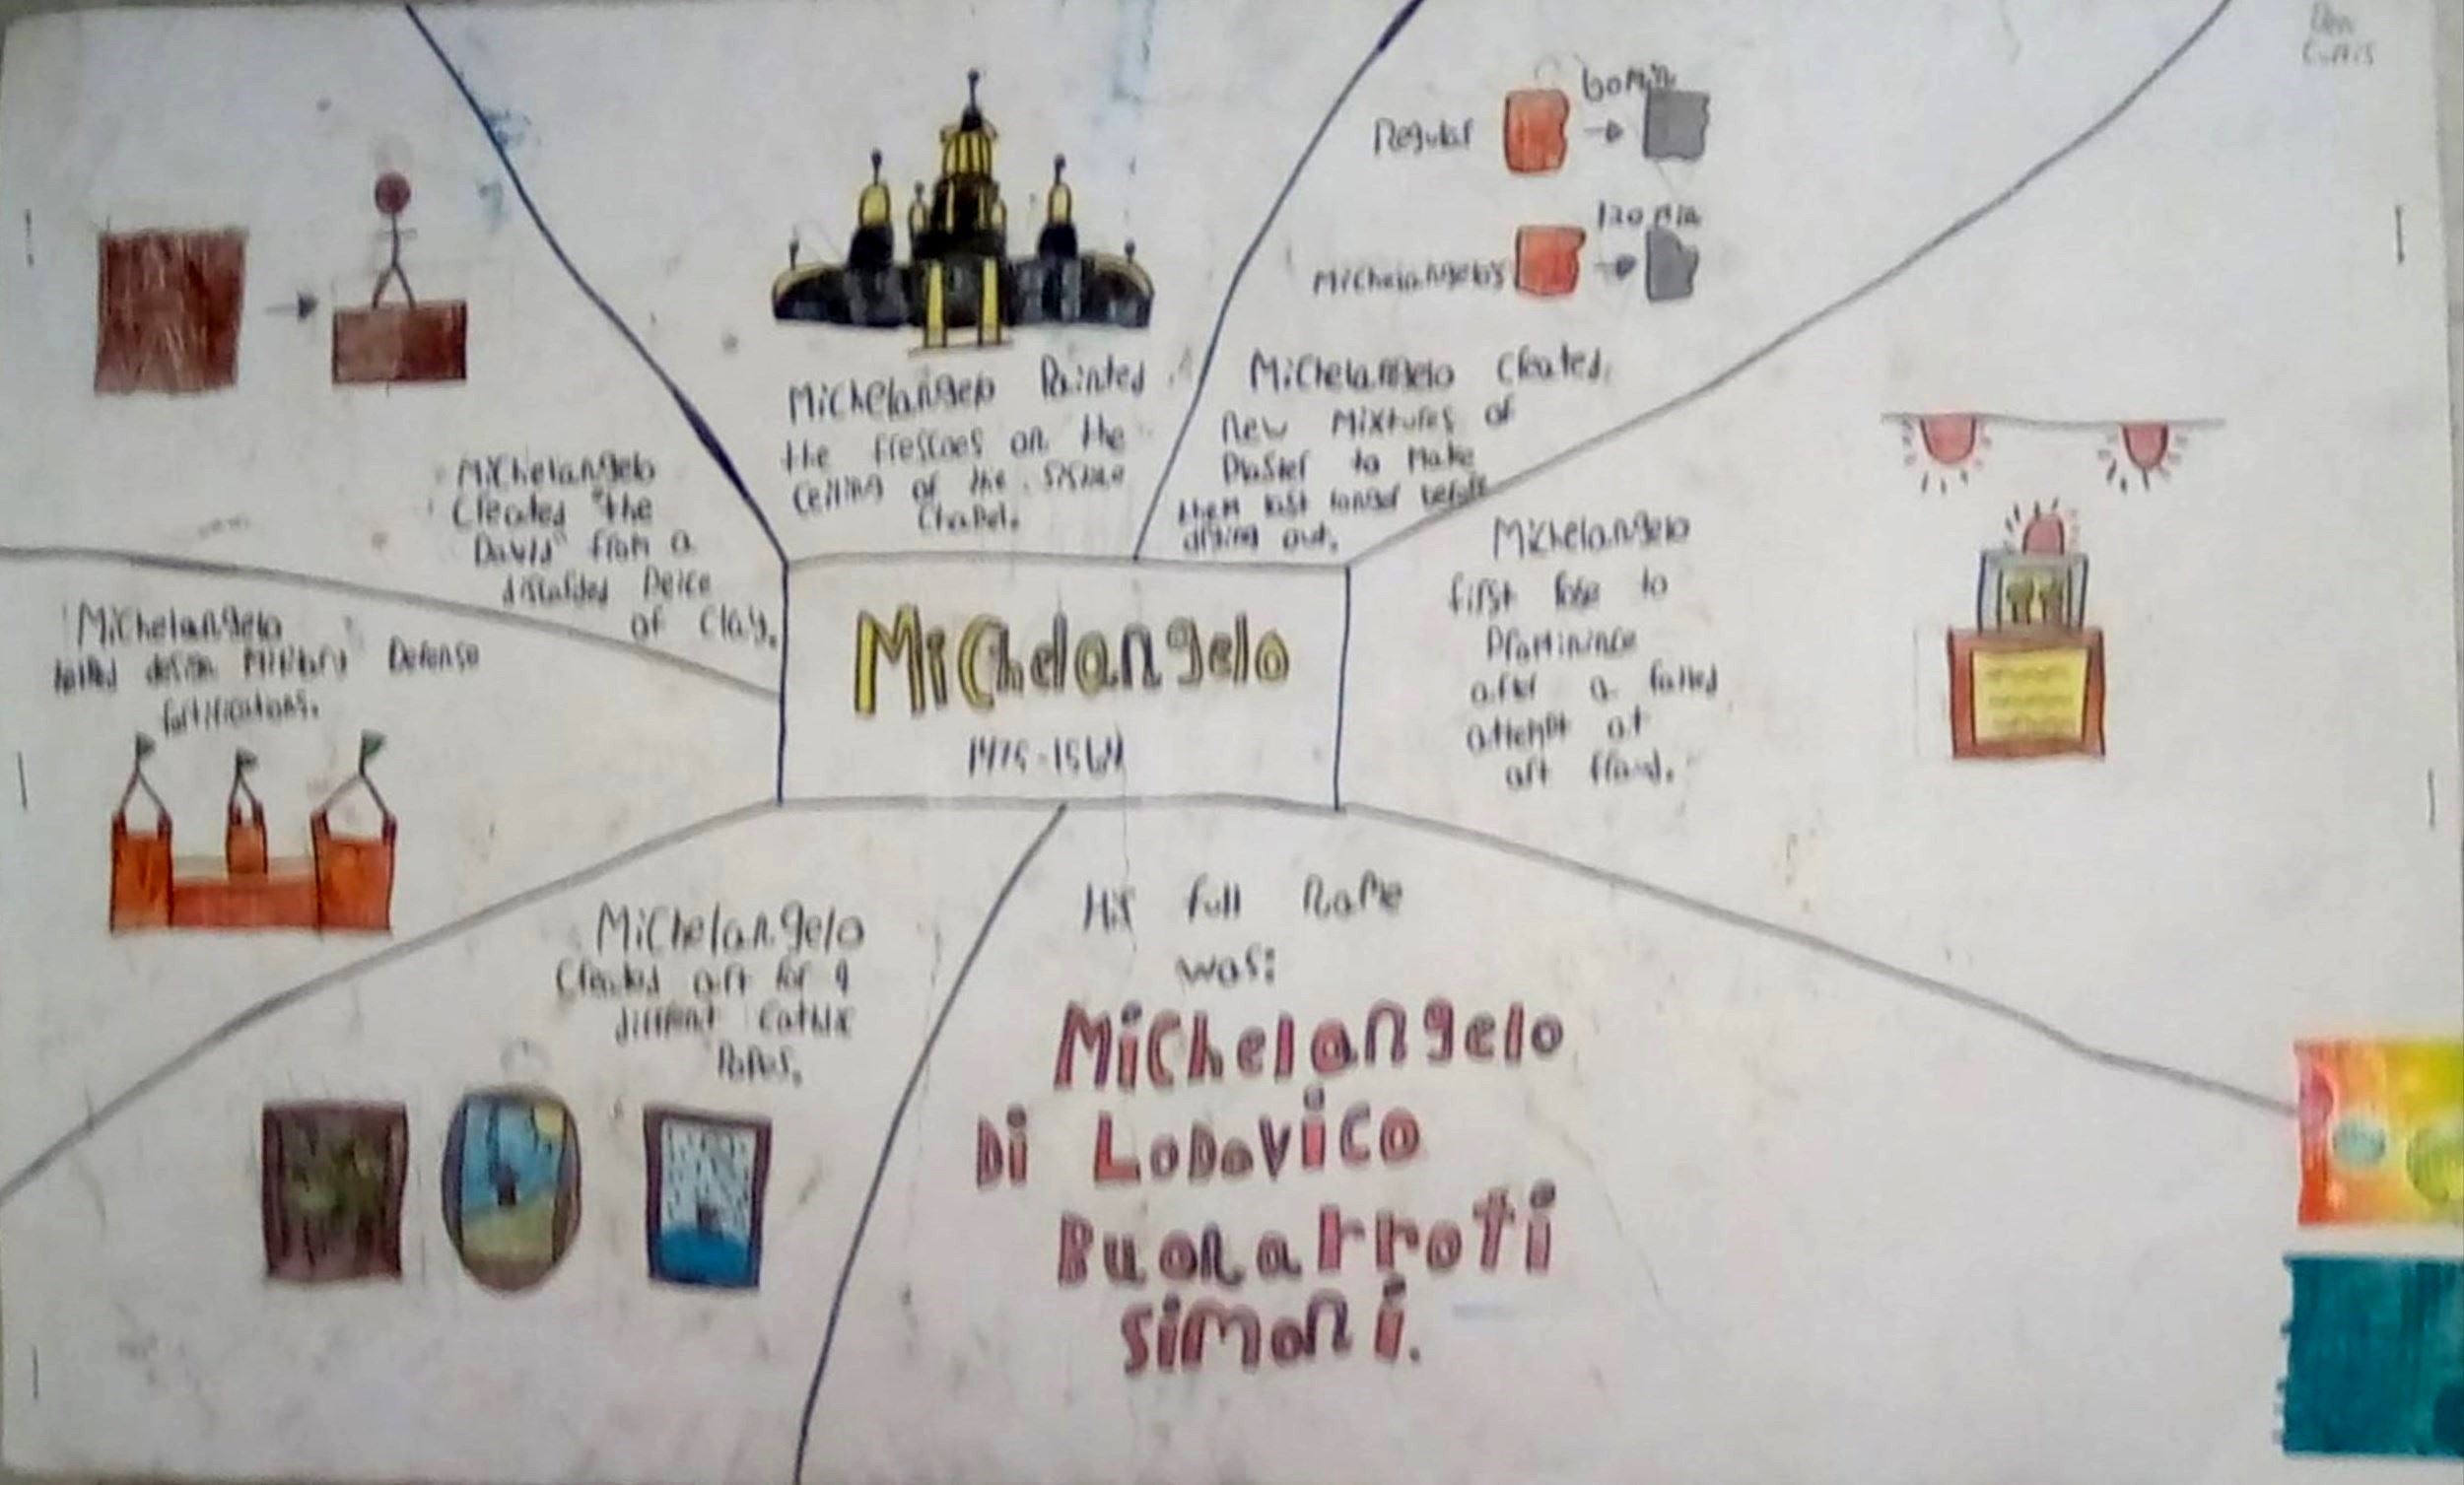 Michelangelo
1475-1564
Michelangelo Painted
the frescoes on the
ceiling of the Sistine
Chapel.
Regular
60 Min
Michelangelo's
120 Min
Michelangelo Created
new Mixtures of
Plaster to Make
them last longer before
drying out.
Michelangelo
first rose to
Prominince
after a failed
attempt at
art fraud.
His full name
was:
Michelangelo
Di LoDovico
Buonarroti
Simoni.
Michelangelo
Created art for 9
different Catholic
Popes.
Michelangelo
design Military Defense
fortifications.
Michelangelo
Created "the
David" from a
discarded Peice
of Clay.
Curtis